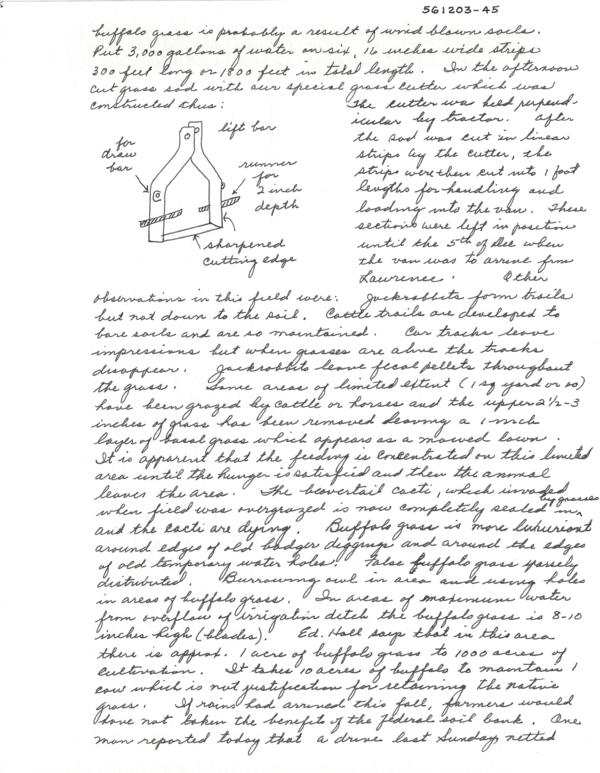 561203-45
buffalo grass is probably a result of wind blown soils.
Put 3,000 gallons of water on six, 16 inches wide strips
300 feet long or 1800 feet in total length. In the afternoon
cut grass sod with our special grass cutter which was
constructed thus:
lift bar
for
draw
bar
runner
for
2 inch
depth
sharpened
cutting edge
The cutter was held perpend-
icular by tractor. After
the sod was cut in linear
strips by the cutter, the
strips were then cut into 1 foot
lengths for handling and
loading into the van. These
sections were left in position
until the 5th of Dec when
the van was to arrive from
Lawrence. Other
observations in this field were: Jackrabbits form trails
but not down to the soil. Cattle trails are developed to
bare soils and are so maintained. Car tracks leave
impressions but when grasses are alive the tracks
disappear. Jackrabbits leave fecal pellets throughout
the grass. Some areas of limited extent (1 sq yard or so)
have been grazed by cattle or horses and the upper 2½-3
inches of grass has been removed leaving a 1 inch
layer of basal grass which appears as a mowed lawn.
It is apparent that the feeding is concentrated on this limited
area until the hunger is satisfied and then the animal
leaves the area. The beavertail cacti, which invaded
when field was overgrazed is now completely sealed in by grasses
and the cacti are dying. Buffalo grass is more luxuriant
around edges of old badger diggings and around the edges
of old temporary water holes. False buffalo grass sparsely
distributed. Burrowing owl in area and using holes
in areas of buffalo grass. In areas of maximum water
from overflow of irrigation ditch the buffalo grass is 8-10
inches high (blades). Ed. Hall says that in this area
there is approx. 1 acre of buffalo grass to 1000 acres of
cultivation. It takes 10 acres of buffalo to maintain 1
cow which is not justification for retaining the native
grass. If rains had arrived this fall, farmers would
have not taken the benefits of the federal soil bank. One
man reported today that a drive last Sunday netted